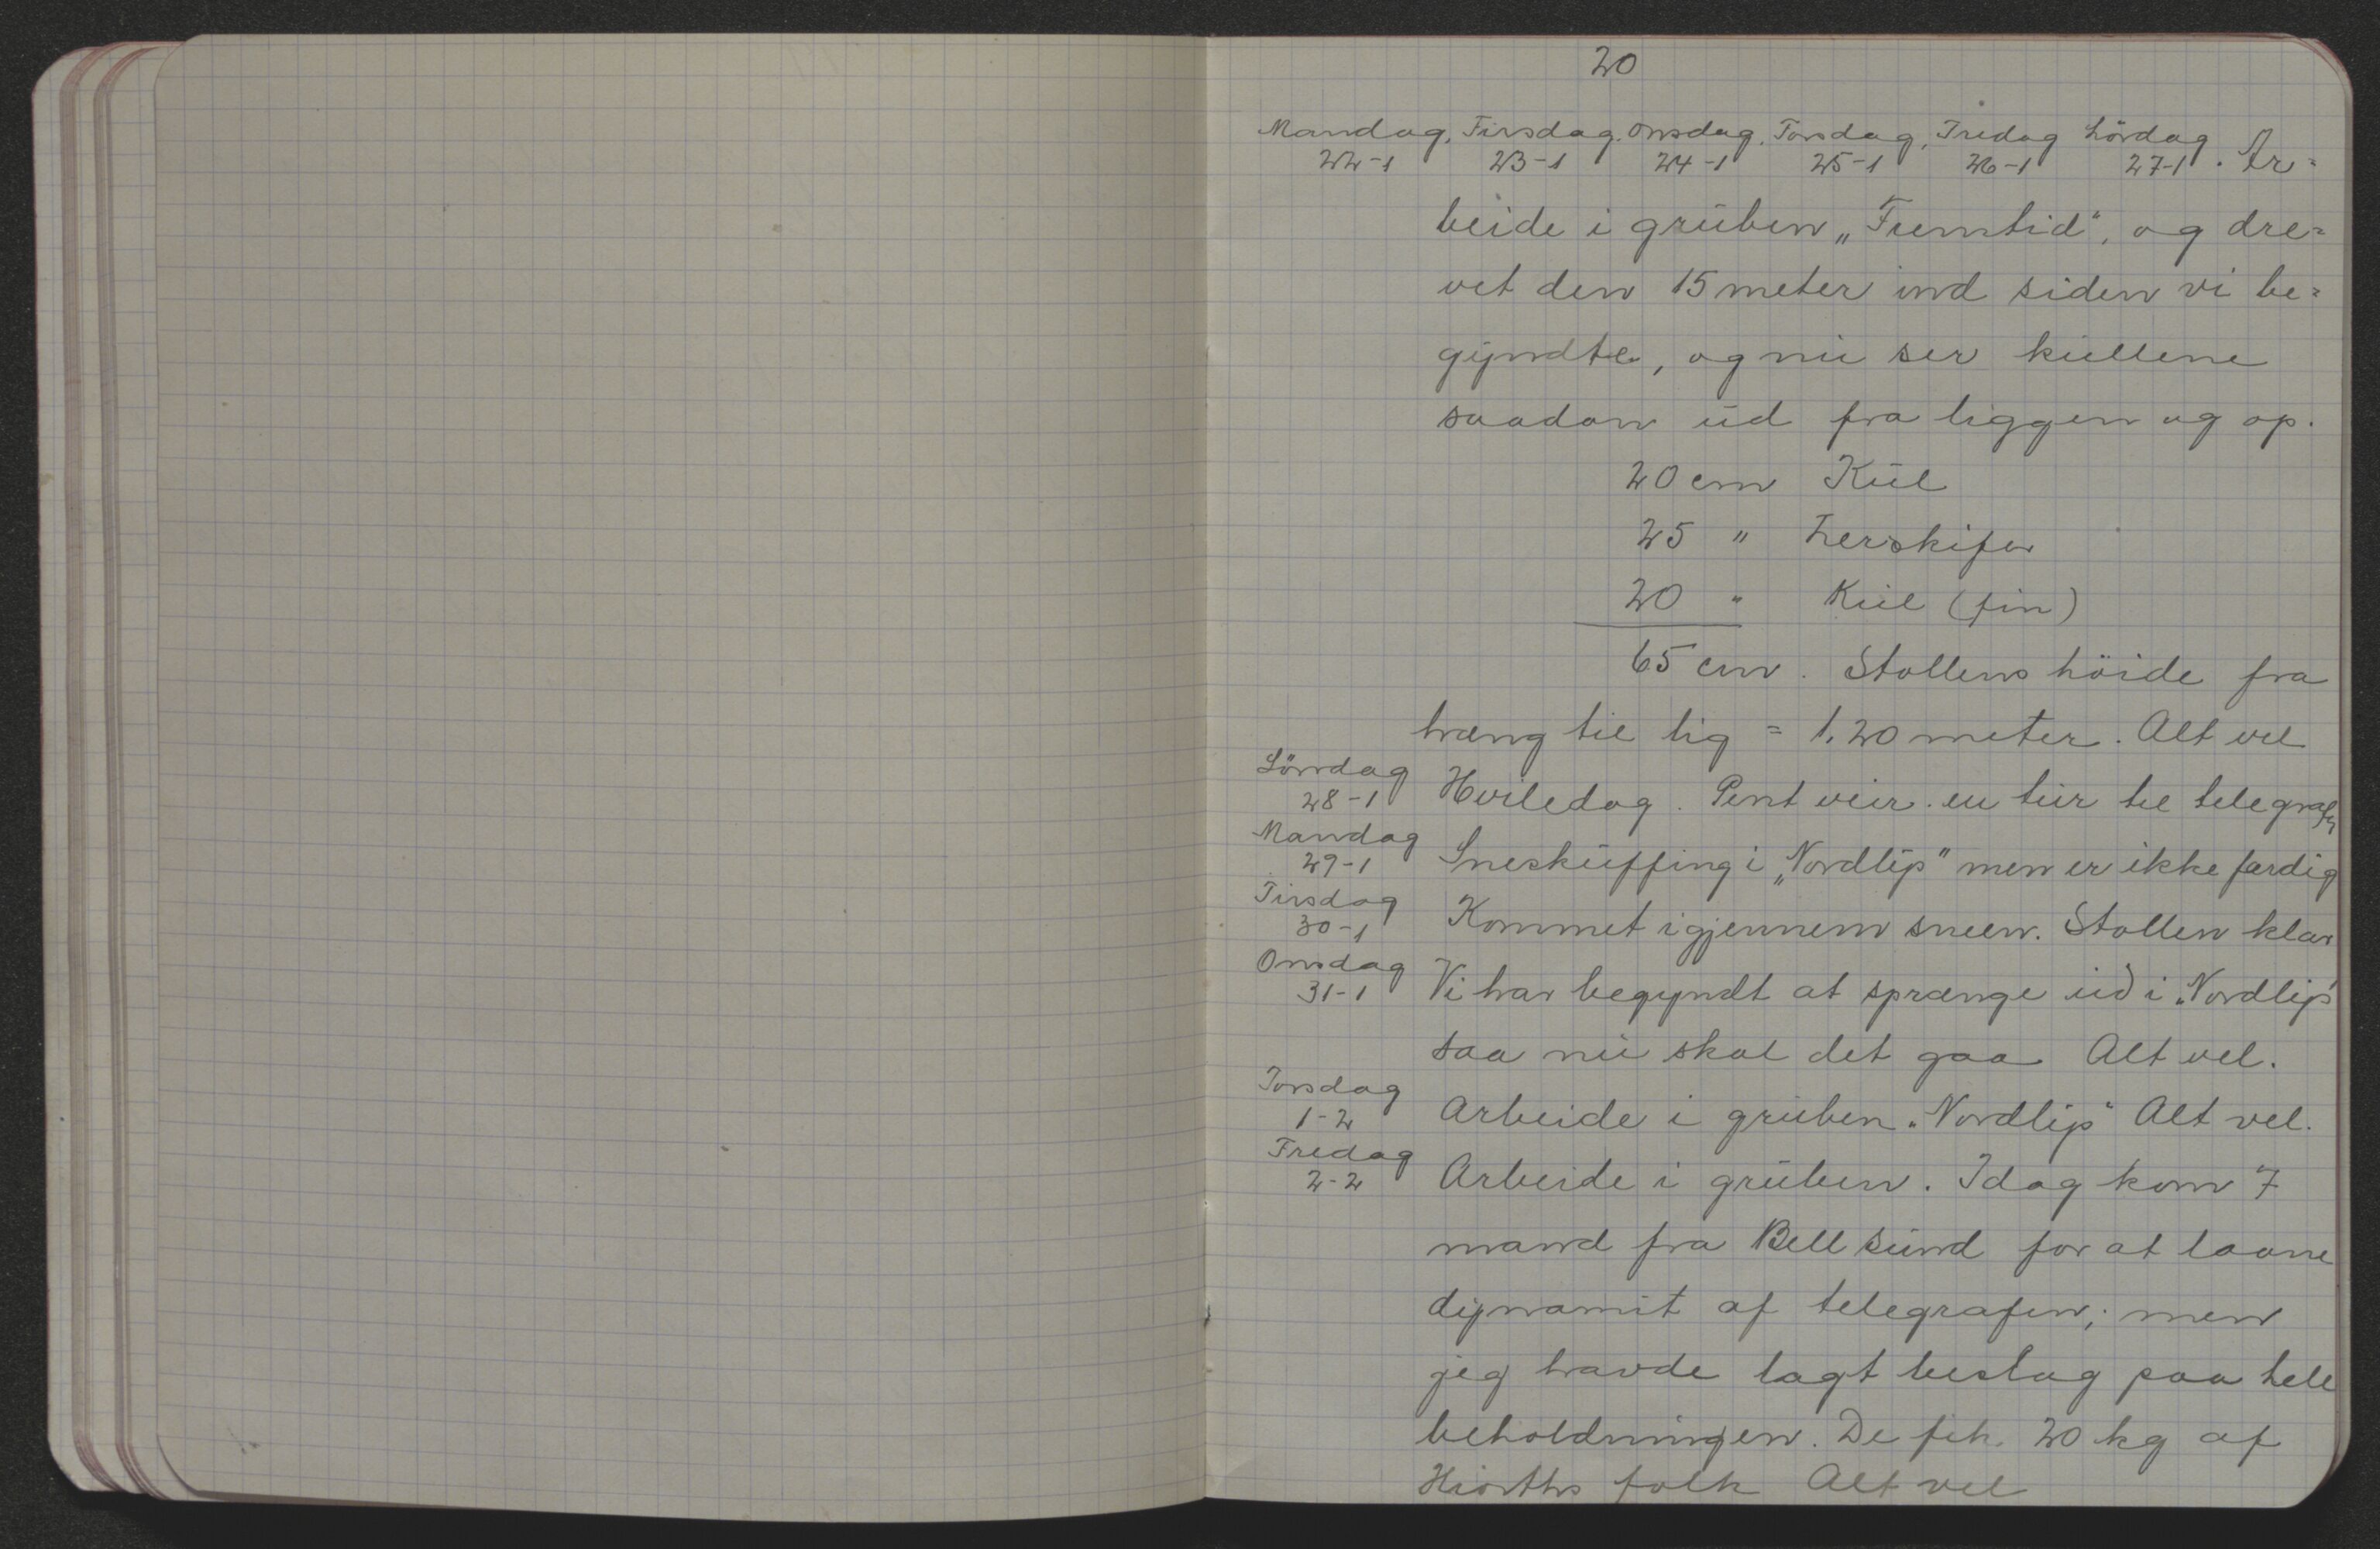 20
Mandag, Tirsdag, Onsdag, Torsdag, Fredag Lördag
22-1 23-1 24-1 25-1 26-1 27-1 . Ar=
beide i grüben „Fremtid", og dre=
vet den 15 meter ind siden vi be=
gyndte, og nü ser küllene
saadan üd fra liggen og op.
20 cm Kül
25 " Lerskifer
20 " Kül (fin)
65 cm. Stollens höide fra
hæng til lig = 1,20 meter. Alt vel
Söndag
28-1 Hviledag. Pent veir. en tür til telegrafen
Mandag
29-1 Sneskuffing i „Nordlys" men er ikke færdig
Tirsdag
30-1 Kommet igjennem sneen. Stollen klar
Onsdag
31-1 Vi har begyndt at sprænge üd i „Nordlys"
saa nü skal det gaa Alt vel.
Torsdag
1-2 Arbeide i grüben „Nordlys" Alt vel.
Fredag
2-2 Arbeide i grüben. Idag kom 7
mand fra Bell Sünd for at laane
dynamit af telegrafen; men
jeg havde lagt beslag paa hele
beholdningen. De fik 20 kg af
Hiorths folk Alt vel